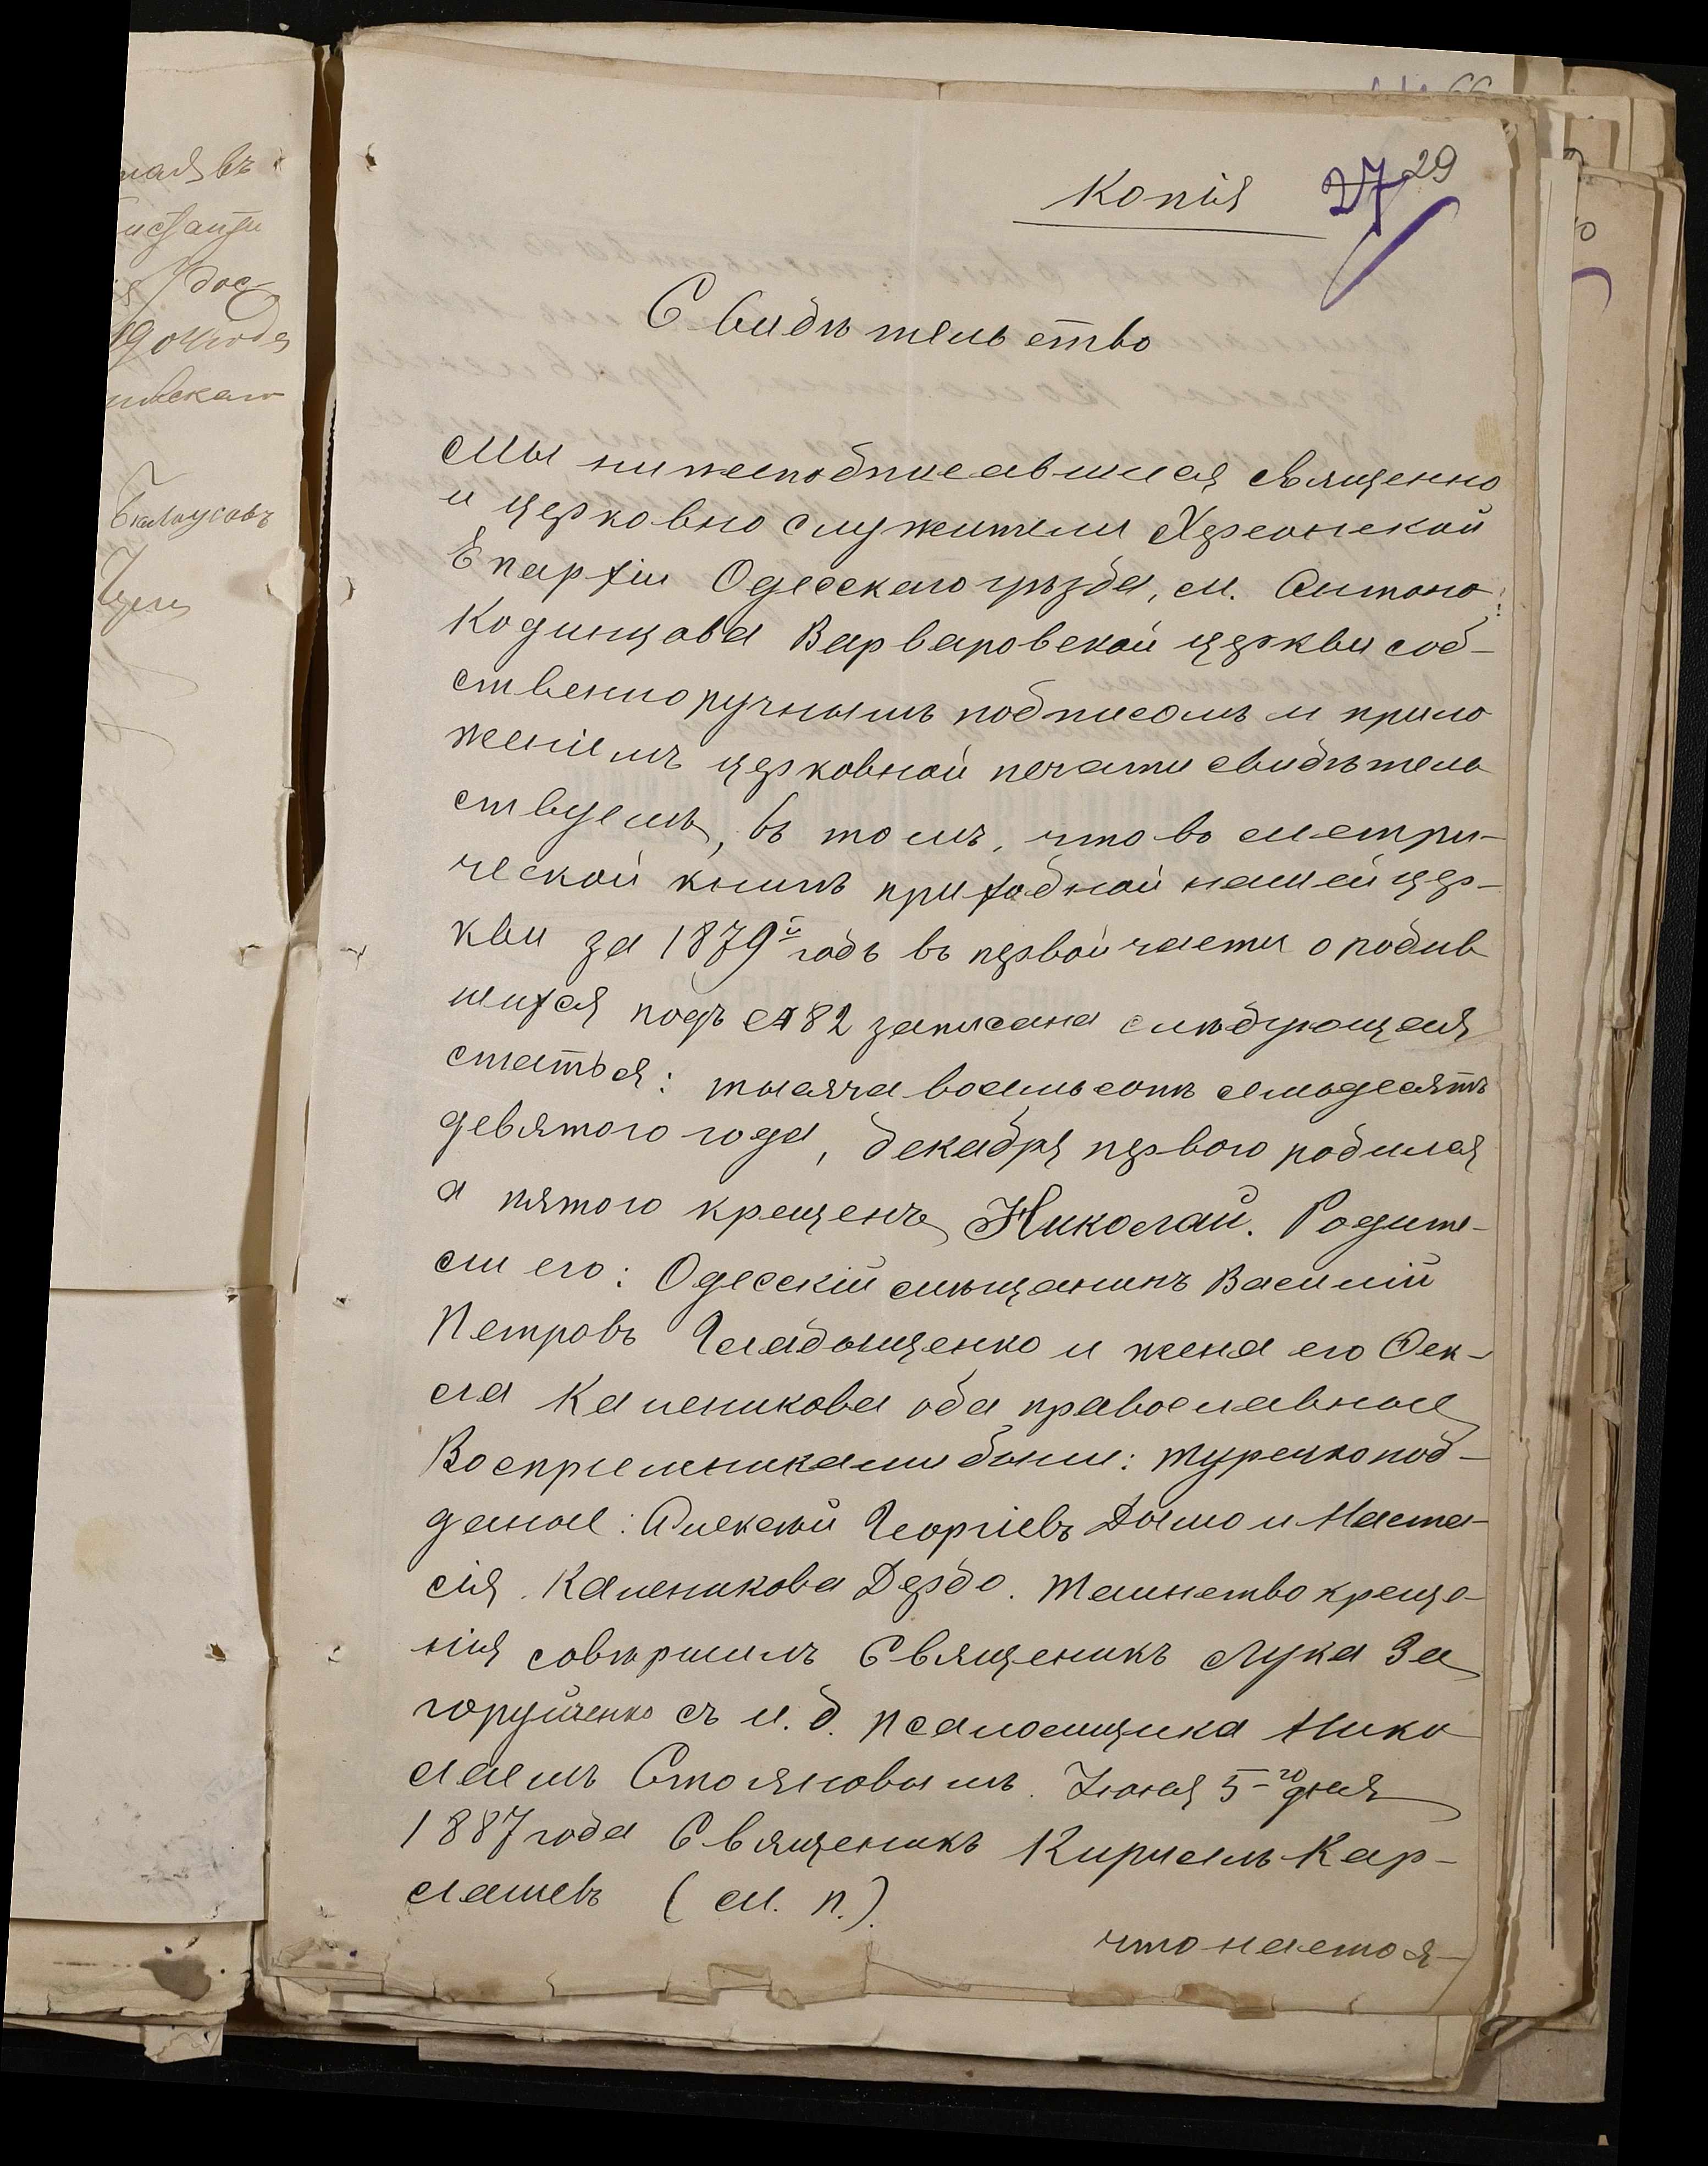 наявъ
дос-
19 октод
Бѣлоусовъ
66
Копія
27 29
Свидѣтельство
Мы нижеподписавшися священно
и церковно служители Херсонской
Епархіи Одесскаго уѣзда, м. Антоно
Кодинцова Варваровской церкви соб-
ственноручнымъ подписомъ и прило
женіемъ церковной печати свидѣтель
ствуемъ, въ томъ, что въ метри-
ческой книгѣ приходной нашей цер-
кви за 1879й годъ въ первой части о родив
шихся подъ № 82 записана слѣдующая
статья: тысяча восемьсотъ семьдесятъ
девятого года, декабря первого родился
а пятого крещенъ Николай. Родите-
ли его: Одесскій мѣщанинъ Василій
Петровъ Гладыщенко и жена его Ѳек-
ла Каленикова оба православные
Воспріемниками были: турецкопод-
даные: Алексѣй Георгіевъ Дымо и Наста-
сія Каленикова Дердо. Таинство креще-
нія совершилъ Священикъ Лука За
горуйченко съ и. д. псаломщика Нико
лаемъ Стояновымъ. Іюня 5-го дня
1887 года Священикъ Кирилъ Кар-
лашевъ (М. п.).
что настоя-